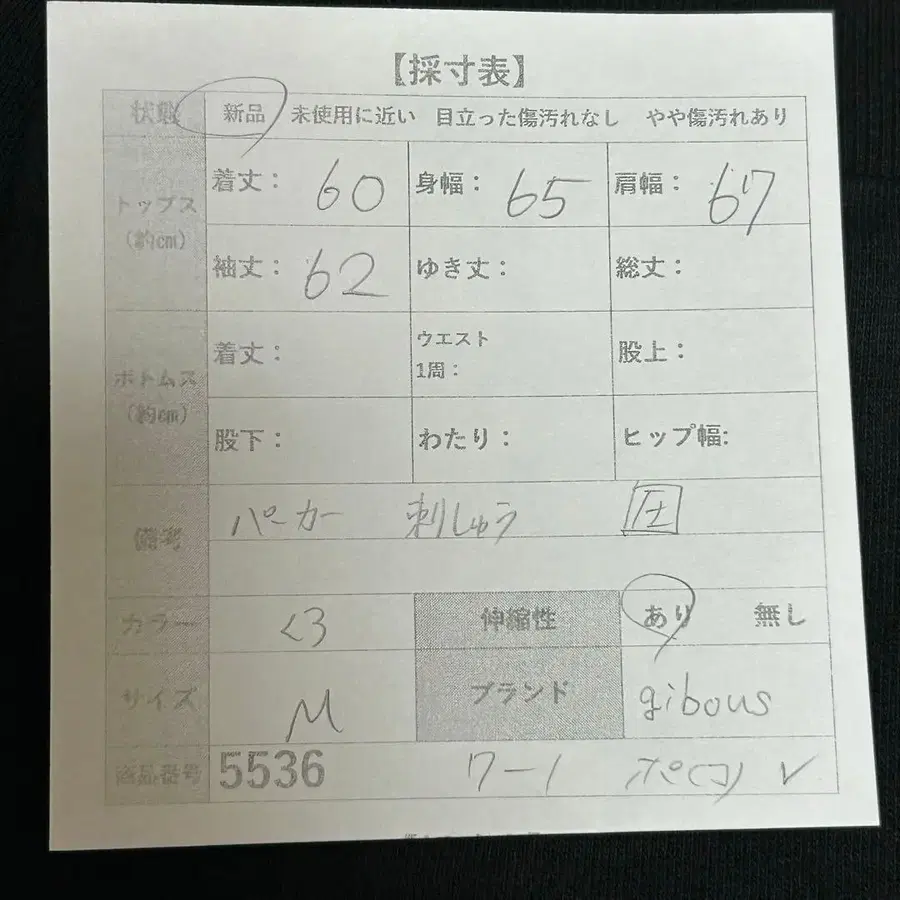 【採寸表】
状態 新品 未使用に近い 目立った傷汚れなし やや傷汚れあり
トップス
(約cm)
着丈： 60 身幅： 65 肩幅： 67
袖丈： 62 ゆき丈： 総丈：
ボトムス
(約cm)
着丈： ウエスト
1周： 股上：
股下： わたり： ヒップ幅:
備考 パーカー 刺しゅう 圧
カラー くろ 伸縮性 あり 無し
サイズ M ブランド gibous
商品番号 5536 ワ-1 ポ(コ) ✓